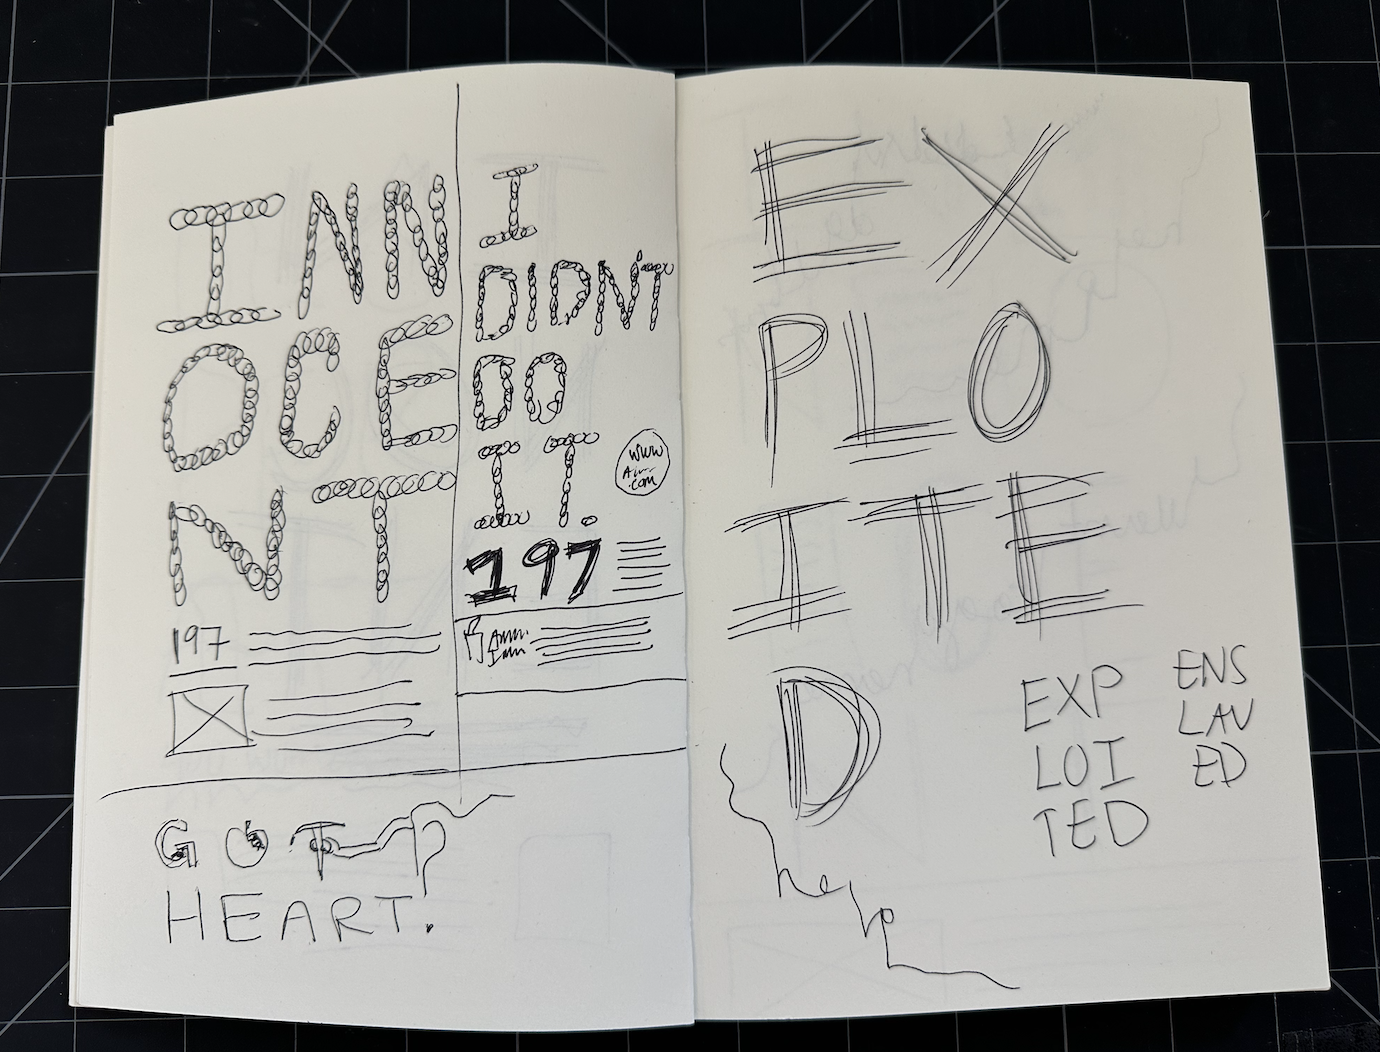 INN
OCE
NT
197
I
DIDN'T
DO
IT.
www
.com
197
GOT
HEART.
EX
PLO
ITE
D
EXP
LOI
TED
ENS
LAV
ED
help